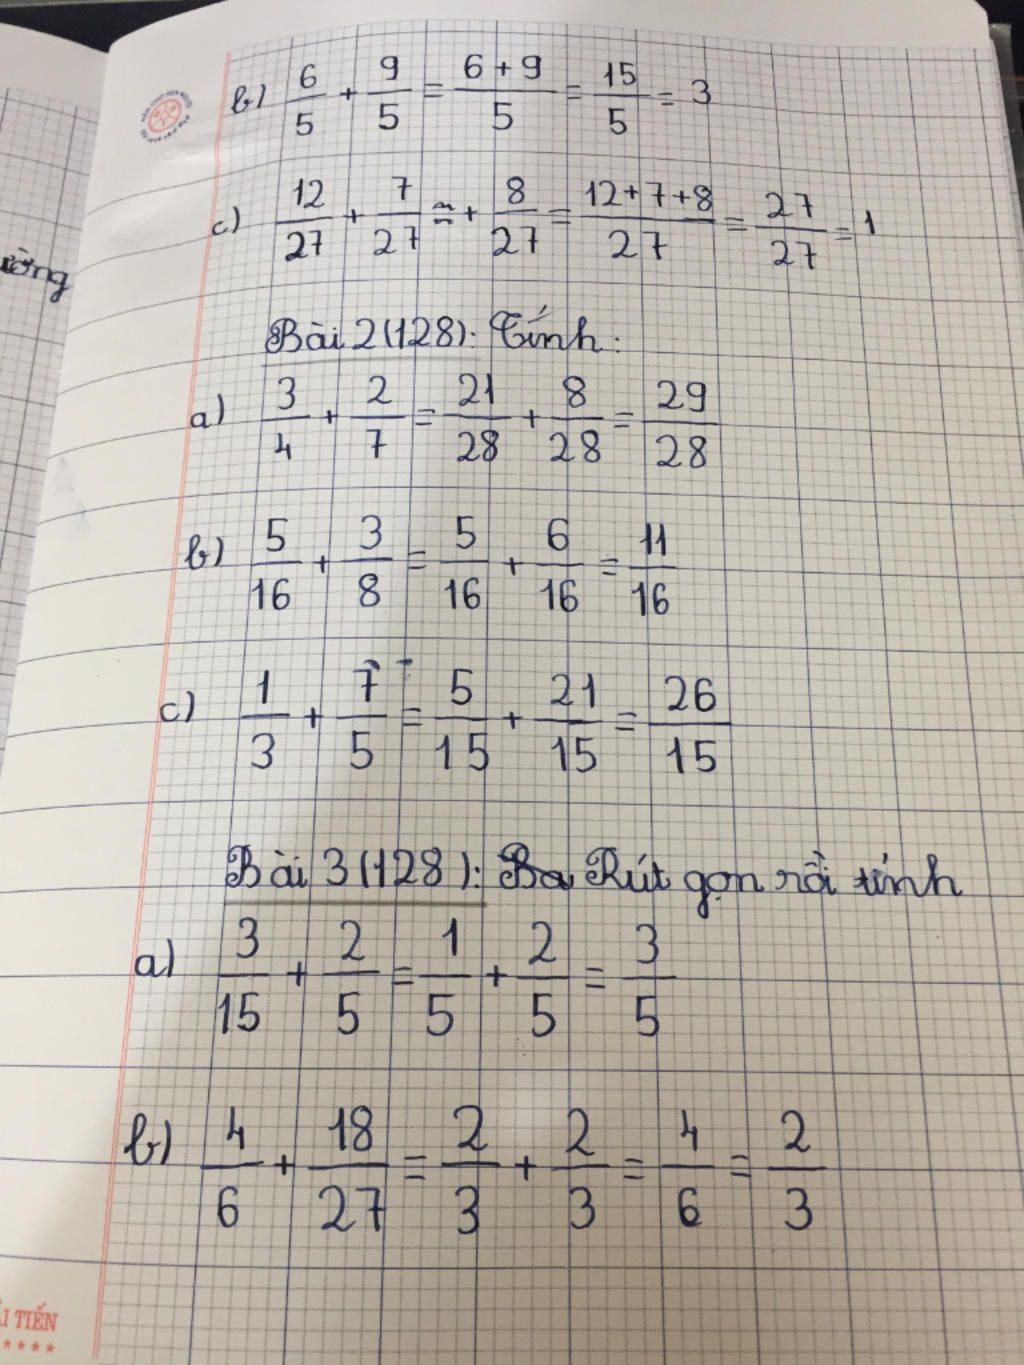 b) 6/5 + 9/5 = 6+9/5 = 15/5 = 3
c) 12/27 + 7/27 = + 8/27 = 12+7+8/27 = 27/27 = 1
ường
Bài 2 (128): Tính:
a) 3/4 + 2/7 = 21/28 + 8/28 = 29/28
b) 5/16 + 3/8 = 5/16 + 6/16 = 11/16
c) 1/3 + 7/5 = 5/15 + 21/15 = 26/15
Bài 3 (128): Ba Rút gọn rồi tính
a) 3/15 + 2/5 = 1/5 + 2/5 = 3/5
b) 4/6 + 18/27 = 2/3 + 2/3 = 4/6 = 2/3
ẢI TIẾN